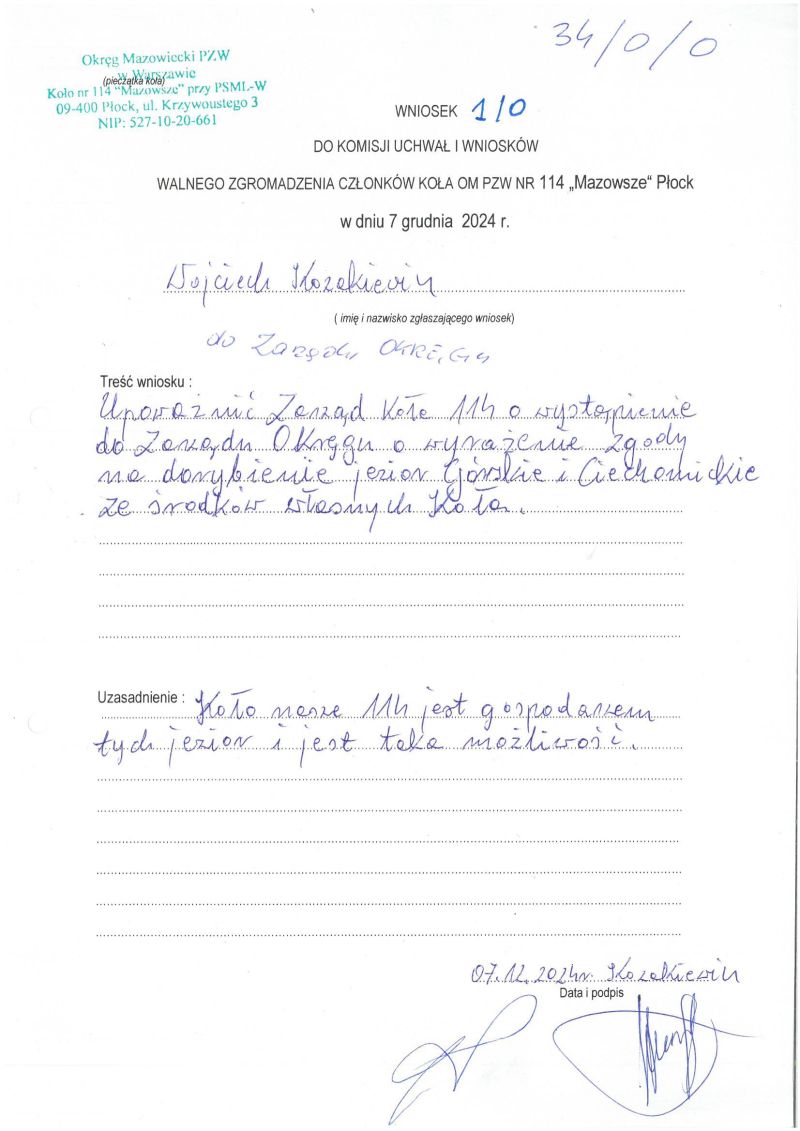 34/0/0
Okręg Mazowiecki PZW
w Warszawie
(pieczątka koła)
Koło nr 114 "Mazowsze" przy PSML-W
09-400 Płock, ul. Krzywoustego 3
NIP: 527-10-20-661
WNIOSEK 1/0
DO KOMISJI UCHWAŁ I WNIOSKÓW
WALNEGO ZGROMADZENIA CZŁONKÓW KOŁA OM PZW NR 114 „Mazowsze“ Płock
w dniu 7 grudnia 2024 r.
Wojciech Kozakiewicz
( imię i nazwisko zgłaszającego wniosek)
do Zarządu OKRĘGu
Treść wniosku :
Upoważnić Zarząd Koła 114 o wystąpienie
do Zarządu Okręgu o wyrażenie zgody
na dorybienie jezior Górskie i Ciechomickie
ze środków własnych Koła.
Uzasadnienie : Koło nasze 114 jest gospodarzem
tych jezior i jest taka możliwość.
07.12.2024r. Kozakiewicz
Data i podpis